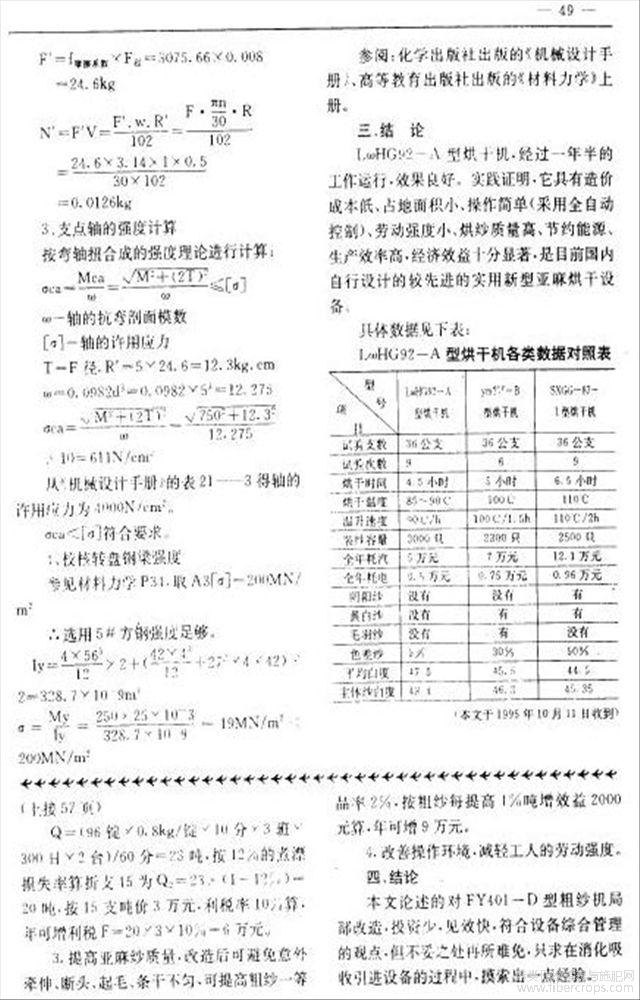 — 49 —
F'=f摩擦系数×F总=3075.66×0.008
=24.6kg
N'=F'V=F'.w.R'/102=F·πn/30·R/102
=24.6×3.14×1×0.5/30×102
=0.0126kg
3.支点轴的强度计算
按弯轴扭合成的强度理论进行计算:
σca=Mca/ω=√M²+(2T)²/ω≤[σ]
ω—轴的抗弯剖面模数
[σ]—轴的许用应力
T=F径.R'=5×24.6=12.3kg.cm
ω=0.0982d³=0.0982×5³=12.275
σca=√M²+(2T)²/ω=√750²+12.3²/12.275
×10=611N/cm²
从《机械设计手册》的表21——3得轴的
许用应力为4000N/cm²。
σca<[σ]符合要求。
4.校核转盘钢梁强度
参见材料力学P34.取A3[σ]=200MN/
m²
∴选用5#方钢强度足够。
Iy=4×56³/12×2+(42×4³/12+27²×4×42)×
2=328.7×10⁻⁹m⁴
σ=My/Iy=250×25×10⁻³/328.7×10⁻⁹=19MN/m²<
200MN/m²
参阅:化学出版社出版的《机械设计手
册》、高等教育出版社出版的《材料力学》上
册。
三.结 论
LωHG92—A型烘干机,经过一年半的
工作运行,效果良好。实践证明,它具有造价
成本低、占地面积小、操作简单(采用全自动
控制)、劳动强度小、烘纱质量高、节约能源、
生产效率高,经济效益十分显著,是目前国内
自行设计的较先进的实用新型亚麻烘干设
备。
具体数据见下表:
LωHG92—A型烘干机各类数据对照表
型号 项目 LωHG92—A型烘干机 型烘干机 SXGG—87—1型烘干机
试验支数 36公支 36公支 36公支
试验次数 9 6 9
烘干时间 4.5小时 5小时 6.5小时
烘干温度 85~90℃ 100℃ 110℃
温升速度 90℃/h 100℃/1.5h 110℃/2h
装纱容量 3000只 2300只 2500只
全年耗汽 5万元 7万元 12.1万元
全年耗电 0.5万元 0.75万元 0.96万元
阴阳纱 没有 没有 有
黄白纱 没有 有 有
毛羽纱 没有 有 没有
色差纱 5% 30% 50%
平均白度 47.5 45.5 44.5
主体纱白度 48.4 46.3 45.35
(本文于1995年10月11日收到)
(上接57页)
Q=(96锭×0.8kg/锭×10分×3班×
300日×2台)/60分=23吨,按12%的煮漂
损失率算折支15为Q₂=23×(1-12%)=
20吨,按15支吨价3万元,利税率10%算,
年可增利税F=20×3×10%=6万元。
3.提高亚麻纱质量,改造后可避免意外
牵伸、断头、起毛、条干不匀,可提高粗纱一等
品率2%,按粗纱每提高1%吨增效益2000
元算,年可增9万元。
4.改善操作环境,减轻工人的劳动强度。
四.结论
本文论述的对FY401—D型粗纱机局
部改造,投资少,见效快,符合设备综合管理
的观点,但不妥之处再所难免,只求在消化吸
收引进设备的过程中,摸索出一点经验。
www.fibercrops.com